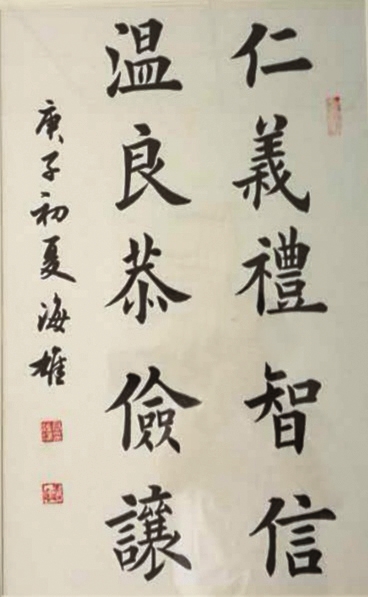 仁義禮智信
温良恭儉讓
庚子初夏海雄